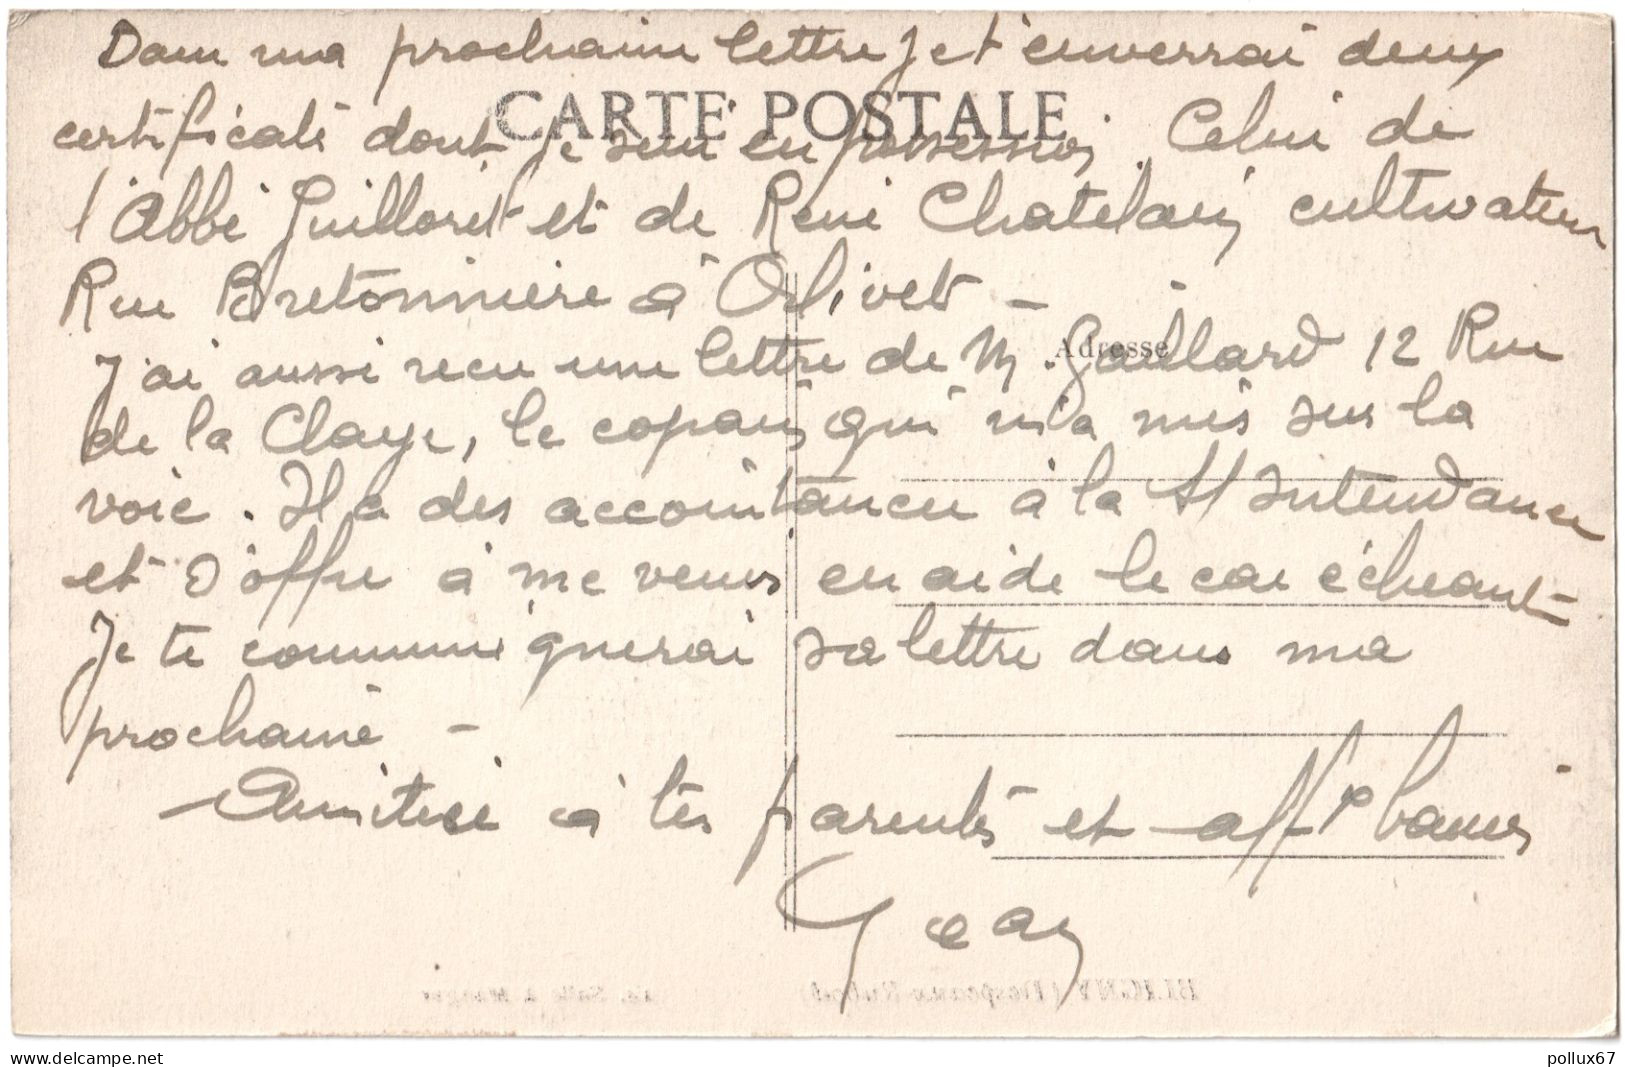 Dans ma prochaine lettre je t'enverrai deux
CARTE POSTALE
certificats dont je suis en possession. Celui de
l'Abbé Guilloret et de René Chatelain cultivateur
Rue Bretonnière à Olivet -
Adresse
J'ai aussi reçu une lettre de M. Gaillard 12 Rue
de la Claye, le copain qui m'a mis sur la
voie. Il a des accointances à la S/Intendance
et s'offre à me venir en aide le cas échéant -
Je te communiquerai sa lettre dans ma
prochaine -
Amitiés à tes parents et aff
Jean
BLIGNY (Despeaux-Rubod)
La Salle à Manger
delcampe.net
pollux67